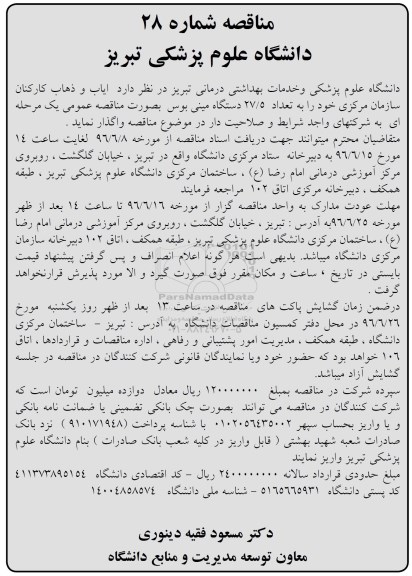 مناقصه شماره ۲۸
دانشگاه علوم پزشکی تبریز
دانشگاه علوم پزشکی وخدمات بهداشتی درمانی تبریز در نظر دارد ایاب و ذهاب کارکنان
سازمان مرکزی خود را به تعداد ۲۷/۵ دستگاه مینی بوس بصورت مناقصه عمومی یک مرحله
ای به شرکتهای واجد شرایط و صلاحیت دار در موضوع مناقصه واگذار نماید .
متقاضیان محترم میتوانند جهت دریافت اسناد مناقصه از مورخه ۹۶/۶/۸ لغایت ساعت ۱۴
مورخ ۹۶/۶/۱۵ به دبیرخانه ستاد مرکزی دانشگاه واقع در تبریز ، خیابان گلگشت ، روبروی
مرکز آموزشی درمانی امام رضا (ع) ، ساختمان مرکزی دانشگاه علوم پزشکی تبریز ، طبقه
همکف ، دبیرخانه مرکزی اتاق ۱۰۲ مراجعه فرمایند
مهلت عودت مدارک به واحد مناقصه گزار از مورخه ۹۶/۶/۱۶ تا ساعت ۱۴ بعد از ظهر
مورخه ۹۶/۶/۲۵به آدرس : تبریز ، خیابان گلگشت ، روبروی مرکز آموزشی درمانی امام رضا
(ع) ، ساختمان مرکزی دانشگاه علوم پزشکی تبریز ، طبقه همکف ، اتاق ۱۰۲ دبیرخانه سازمان
مرکزی دانشگاه میباشد. بدیهی است هر گونه اعلام انصراف و پس گرفتن پیشنهاد قیمت
بایستی در تاریخ ، ساعت و مکان مقرر فوق صورت گیرد و الا مورد پذیرش قرارنخواهد
گرفت .
درضمن زمان گشایش پاکت های مناقصه در ساعت ۱۳ بعد از ظهر روز یکشنبه مورخ
۹۶/۶/۲۶ در محل دفتر کمسیون مناقصات دانشگاه به آدرس : تبریز - ساختمان مرکزی
دانشگاه ، طبقه همکف ، مدیریت امور پشتیبانی و رفاهی ، اداره مناقصات و قراردادها ، اتاق
۱۰۶ خواهد بود که حضور خود ویا نمایندگان قانونی شرکت کنندگان در مناقصه در جلسه
گشایش آزاد میباشد.
سپرده شرکت در مناقصه بمبلغ ۱۲۰۰۰۰۰۰۰ ریال معادل دوازده میلیون تومان است که
شرکت کنندگان در مناقصه می توانند بصورت چک بانکی تضمینی یا ضمانت نامه بانکی
و یا واریز بحساب سپهر ۰۱۰۲۰۵۶۴۳۵۰۰۲ با شناسه پرداخت ( ۹۱۰۱۷۱۹۴۸ ) نزد بانک
صادرات شعبه شهید بهشتی ( قابل واریز در کلیه شعب بانک صادرات ) بنام دانشگاه علوم
پزشکی تبریز واریز نمایند
مبلغ حدودی قرارداد سالانه ۲۴۰۰۰۰۰۰۰۰ ریال - کد اقتصادی دانشگاه ۴۱۱۳۷۳۸۹۵۱۵۴
کد پستی دانشگاه ۵۱۶۵۶۶۵۹۳۱ - شناسه ملی دانشگاه ۱۴۰۰۴۸۵۸۵۷۴
دکتر مسعود فقیه دینوری
معاون توسعه مدیریت و منابع دانشگاه